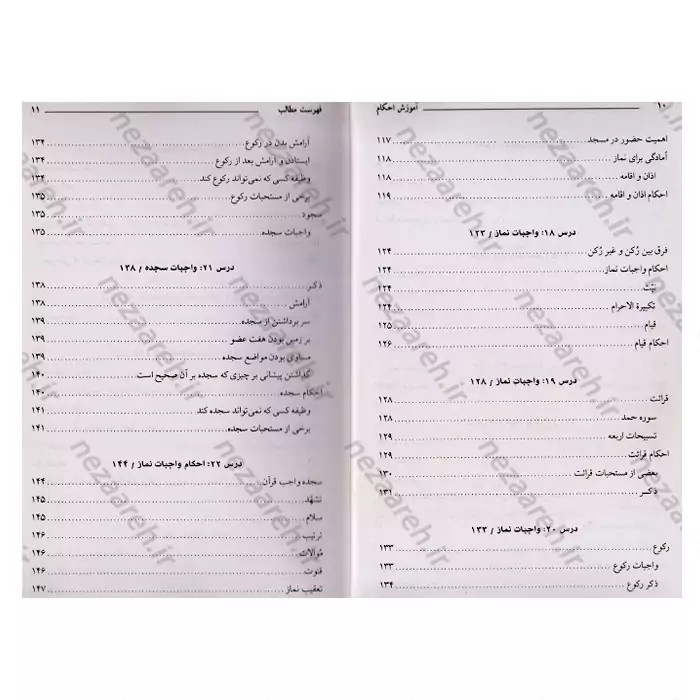 ۱۰ آموزش احکام
اهمیت حضور در مسجد ۱۱۷
آمادگی برای نماز ۱۱۸
اذان و اقامه ۱۱۸
احکام اذان و اقامه ۱۱۹
درس ۱۸: واجبات نماز / ۱۲۳
فرق بین رُکن و غیر رُکن ۱۲۴
احکام واجبات نماز ۱۲۴
نیّت ۱۲۴
تکبیرة الاحرام ۱۲۴
قیام ۱۲۵
احکام قیام ۱۲۶
درس ۱۹: واجبات نماز / ۱۲۸
قرائت ۱۲۸
سوره حمد ۱۲۸
تسبیحات اربعه ۱۲۹
احکام قرائت ۱۲۹
بعضی از مستحبات قرائت ۱۳۰
ذکر ۱۳۱
درس ۲۰: واجبات نماز / ۱۳۳
رکوع ۱۳۳
واجبات رکوع ۱۳۳
ذکر رکوع ۱۳۴
فهرست مطالب ۱۱
آرامش بدن در رکوع ۱۳۴
ایستادن و آرامش بعد از رکوع ۱۳۴
وظیفه کسی که نمی‌تواند رکوع کند ۱۳۴
برخی از مستحبات رکوع ۱۳۵
سجود ۱۳۵
واجبات سجده ۱۳۵
درس ۲۱: واجبات سجده / ۱۳۸
ذکر ۱۳۸
آرامش ۱۳۸
سر برداشتن از سجده ۱۳۹
بر زمین بودن هفت عضو ۱۳۹
مساوی بودن مواضع سجده ۱۳۹
گذاشتن پیشانی بر چیزی که سجده بر آن صحیح است ۱۴۰
احکام سجده ۱۴۰
وظیفه کسی که نمی‌تواند سجده کند ۱۴۱
برخی از مستحبات سجده ۱۴۱
درس ۲۲: احکام واجبات نماز / ۱۴۴
سجده واجب قرآن ۱۴۴
تشهّد ۱۴۵
سلام ۱۴۵
ترتیب ۱۴۶
مُوالات ۱۴۶
قنوت ۱۴۶
تعقیب نماز ۱۴۷
nezaareh.ir